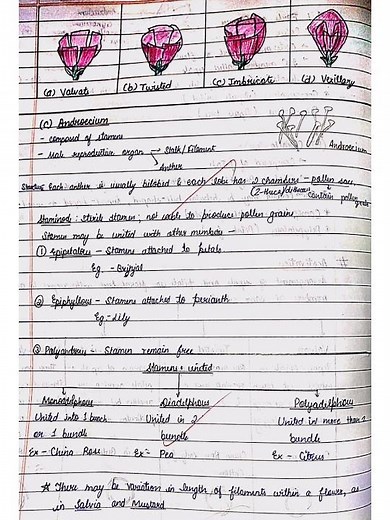 (a) Valvate (b) Twisted (c) Imbricate (d) Vexillary
(c) Androecium
- composed of stamens
- Male reproductive organ — Stalk/Filament
Anther
Androecium
Structure Each anther is usually bilobed & each lobe has 2 chambers - pollen sac,
contain pollen grain
Staminod : Sterile stamen; not able to produce pollen grain
Stamen may be united with other members -
① Epipetalous - Stamens attached to petals
Eg. - Brinjal
② Epiphyllous - Stamens attached to perianth
Eg - Lily
③ Polyandrous - Stamen remain free
Stamens united
Monoadelphous Diadelphous Polyadelphous
United into 1 bunch United in 2 United in more than 2
or 1 bundle bundle bundle
Ex - China Rose Ex - Pea Ex - Citrus
* There may be variation in length of filaments within a flower, as
in Salvia and Mustard